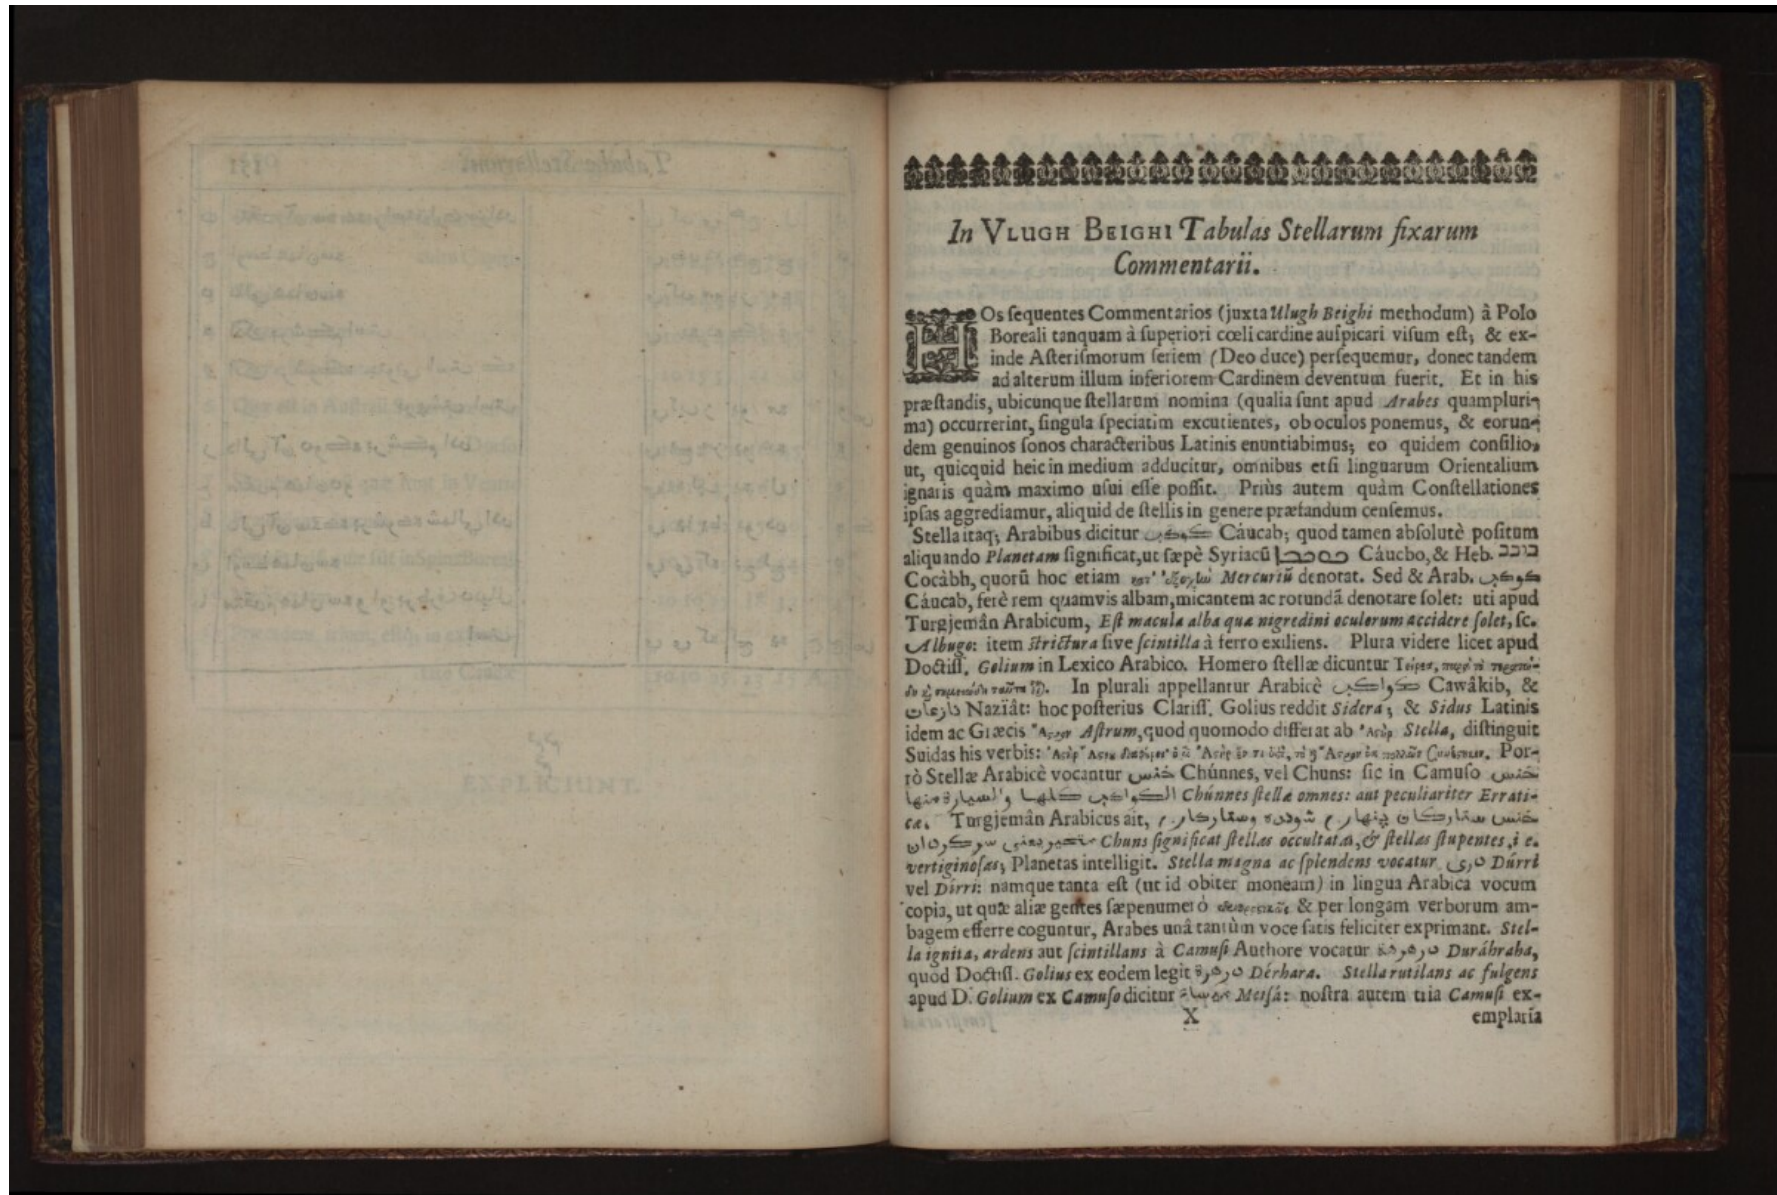 In VLUGH BEIGHI Tabulas Stellarum fixarum
Commentarii.
HOs sequentes Commentarios (juxta Ulugh Beighi methodum) à Polo
Boreali tanquam à superiori cœli cardine auspicari visum est; & ex-
inde Asterismorum seriem (Deo duce) persequemur, donec tandem
ad alterum illum inferiorem Cardinem deventum fuerit. Et in his
præstandis, ubicunque stellarum nomina (qualia sunt apud Arabes quampluri-
ma) occurrerint, singula speciatim excutientes, ob oculos ponemus, & eorun-
dem genuinos sonos characteribus Latinis enuntiabimus; eo quidem consilio,
ut, quicquid heic in medium adducitur, omnibus etsi linguarum Orientalium
ignaris quàm maximo usui esse possit. Priùs autem quàm Constellationes
ipsas aggrediamur, aliquid de stellis in genere præfandum censemus.
Stella itaq; Arabibus dicitur كوكب Cáucab; quod tamen absolutè positum
aliquando Planetam significat, ut sæpè Syriacũ Cáucbo, & Heb. כוכב
Cocàbh, quorũ hoc etiam Mercuriũ denotat. Sed & Arab. كوكب
Cáucab, ferè rem quamvis albam, micantem ac rotundã denotare solet: uti apud
Turgjemân Arabicum, Est macula alba quæ nigredini oculorum accidere solet, sc.
Albugo: item strictura sive scintilla à ferro exiliens. Plura videre licet apud
Doctiss. Golium in Lexico Arabico. Homero stellæ dicuntur
In plurali appellantur Arabicè كواكب Cawâkib, &
نازعات Nazïât: hoc posterius Clariss. Golius reddit Sidera; & Sidus Latinis
idem ac Græcis Astrum, quod quomodo differat ab Stella, distinguit
Suidas his verbis: Por-
rò Stellæ Arabicè vocantur خنس Chúnnes, vel Chuns: sic in Camuso خنس
الكواكب كلها والسيارة منها Chúnnes stellæ omnes: aut peculiariter Errati-
cæ. Turgjemân Arabicus ait, خنس
Chuns significat stellas occultatas, & stellas stupentes, i e.
vertiginosas; Planetas intelligit. Stella magna ac splendens vocatur دري Dúrri
vel Dírri: namque tanta est (ut id obiter moneam) in lingua Arabica vocum
copia, ut quæ aliæ gentes sæpenumerò & per longam verborum am-
bagem efferre coguntur, Arabes unâ tantùm voce satis feliciter exprimant. Stel-
la ignita, ardens aut scintillans à Camusi Authore vocatur درهرهة Duráhraha,
quod Doctiss. Golius ex eodem legit درهرة Dérhara. Stella rutilans ac fulgens
apud D. Golium ex Camuso dicitur Meisá: nostra autem tria Camusi ex-
X emplaria